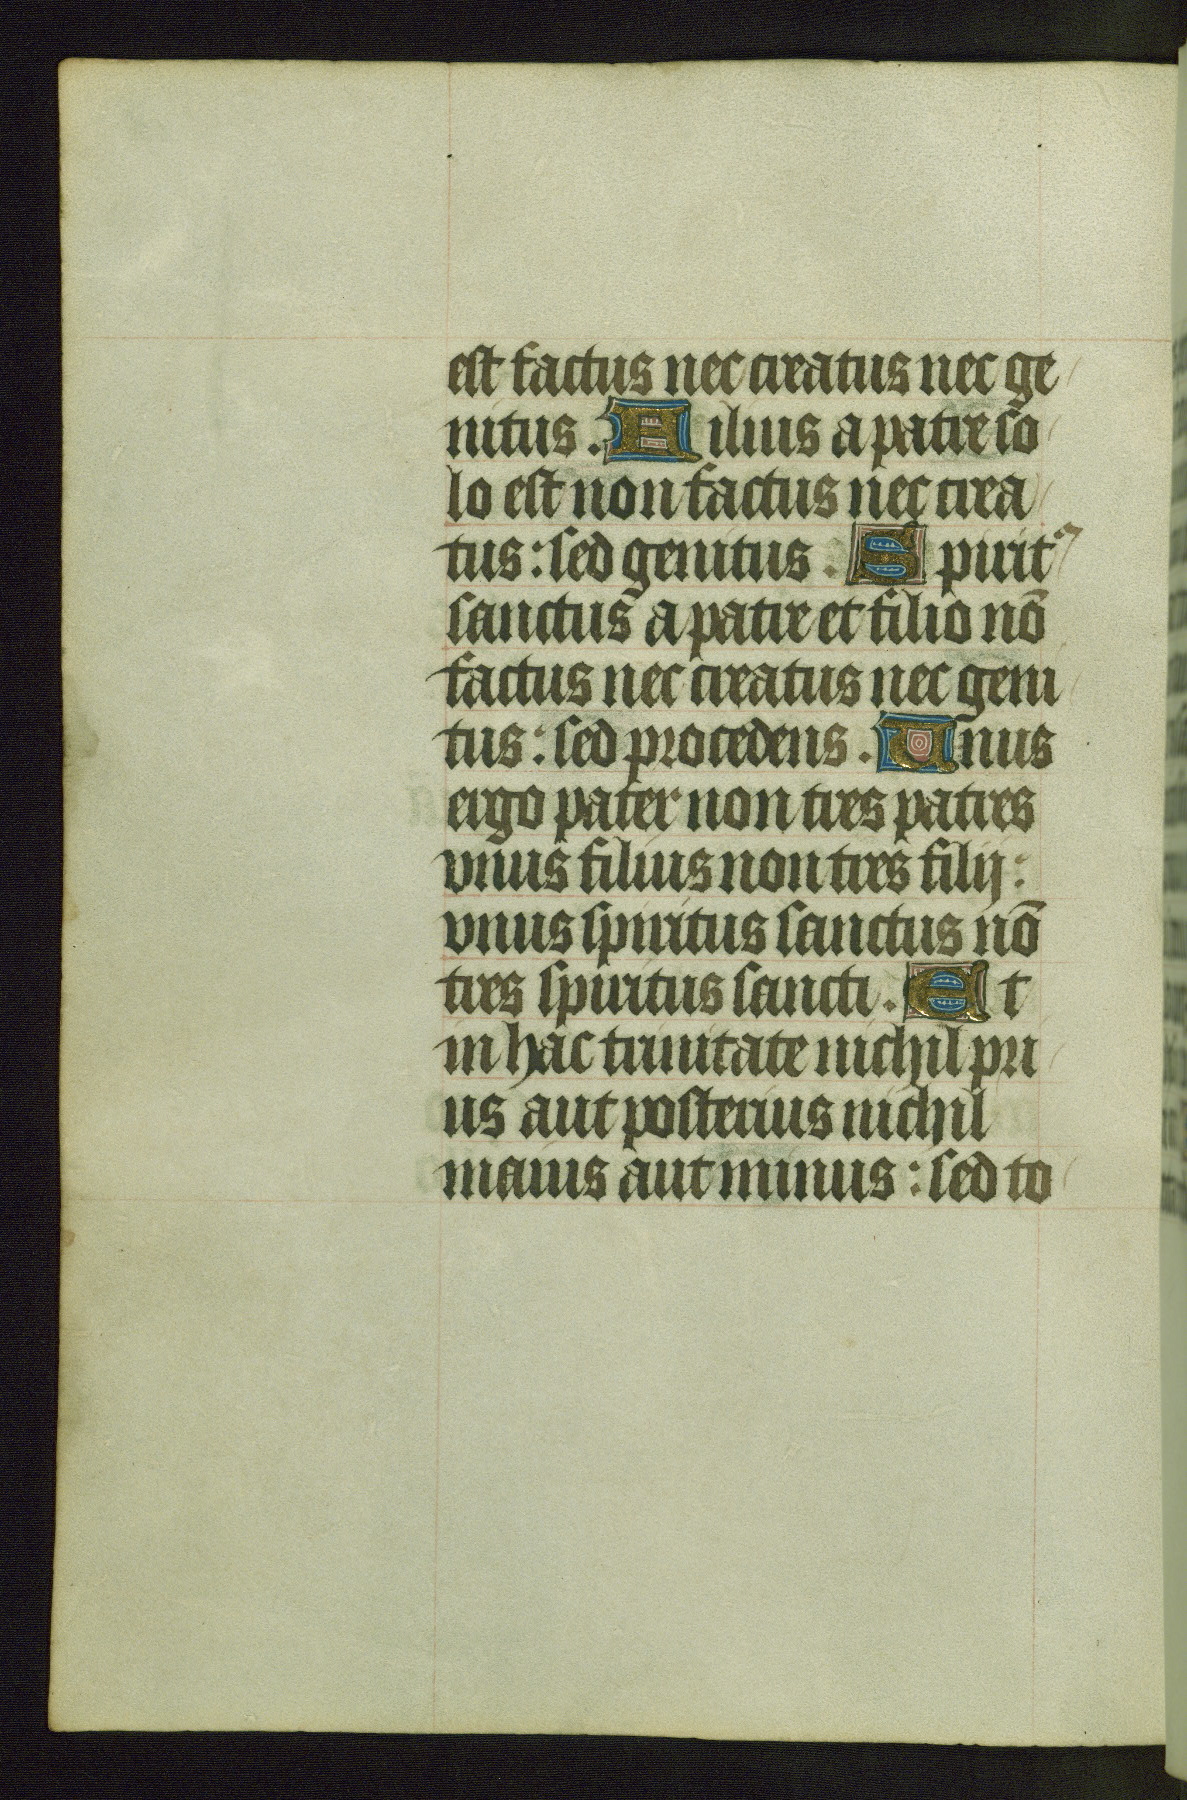 est factus nec creatus nec ge
nitus. Filius a patre so
lo est non factus nec crea
tus: sed genitus. Spiritꝰ
sanctus a patre et filio nō
factus nec creatus nec geni
tus: sed procedens. Unus
ergo pater non tres patres
vnus filius non tres filij:
vnus spiritus sanctus nō
tres spiritus sancti. Et
in hac trinitate nichil pri
us aut posterius nichil
maius aut minus: sed to